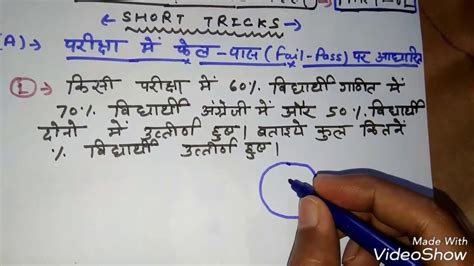 ← SHORT TRICKS →
(A)→ परीक्षा में फेल-पास (Fail-Pass) पर आधारित
(1)→ किसी परीक्षा में 60% विद्यार्थी गणित में
70% विद्यार्थी अंग्रेजी में और 50% विद्यार्थी
दोनो में उत्तीर्ण हुए। बताइये कुल कितनें
% विद्यार्थी उत्तीर्ण हुए।
Made With
VideoShow